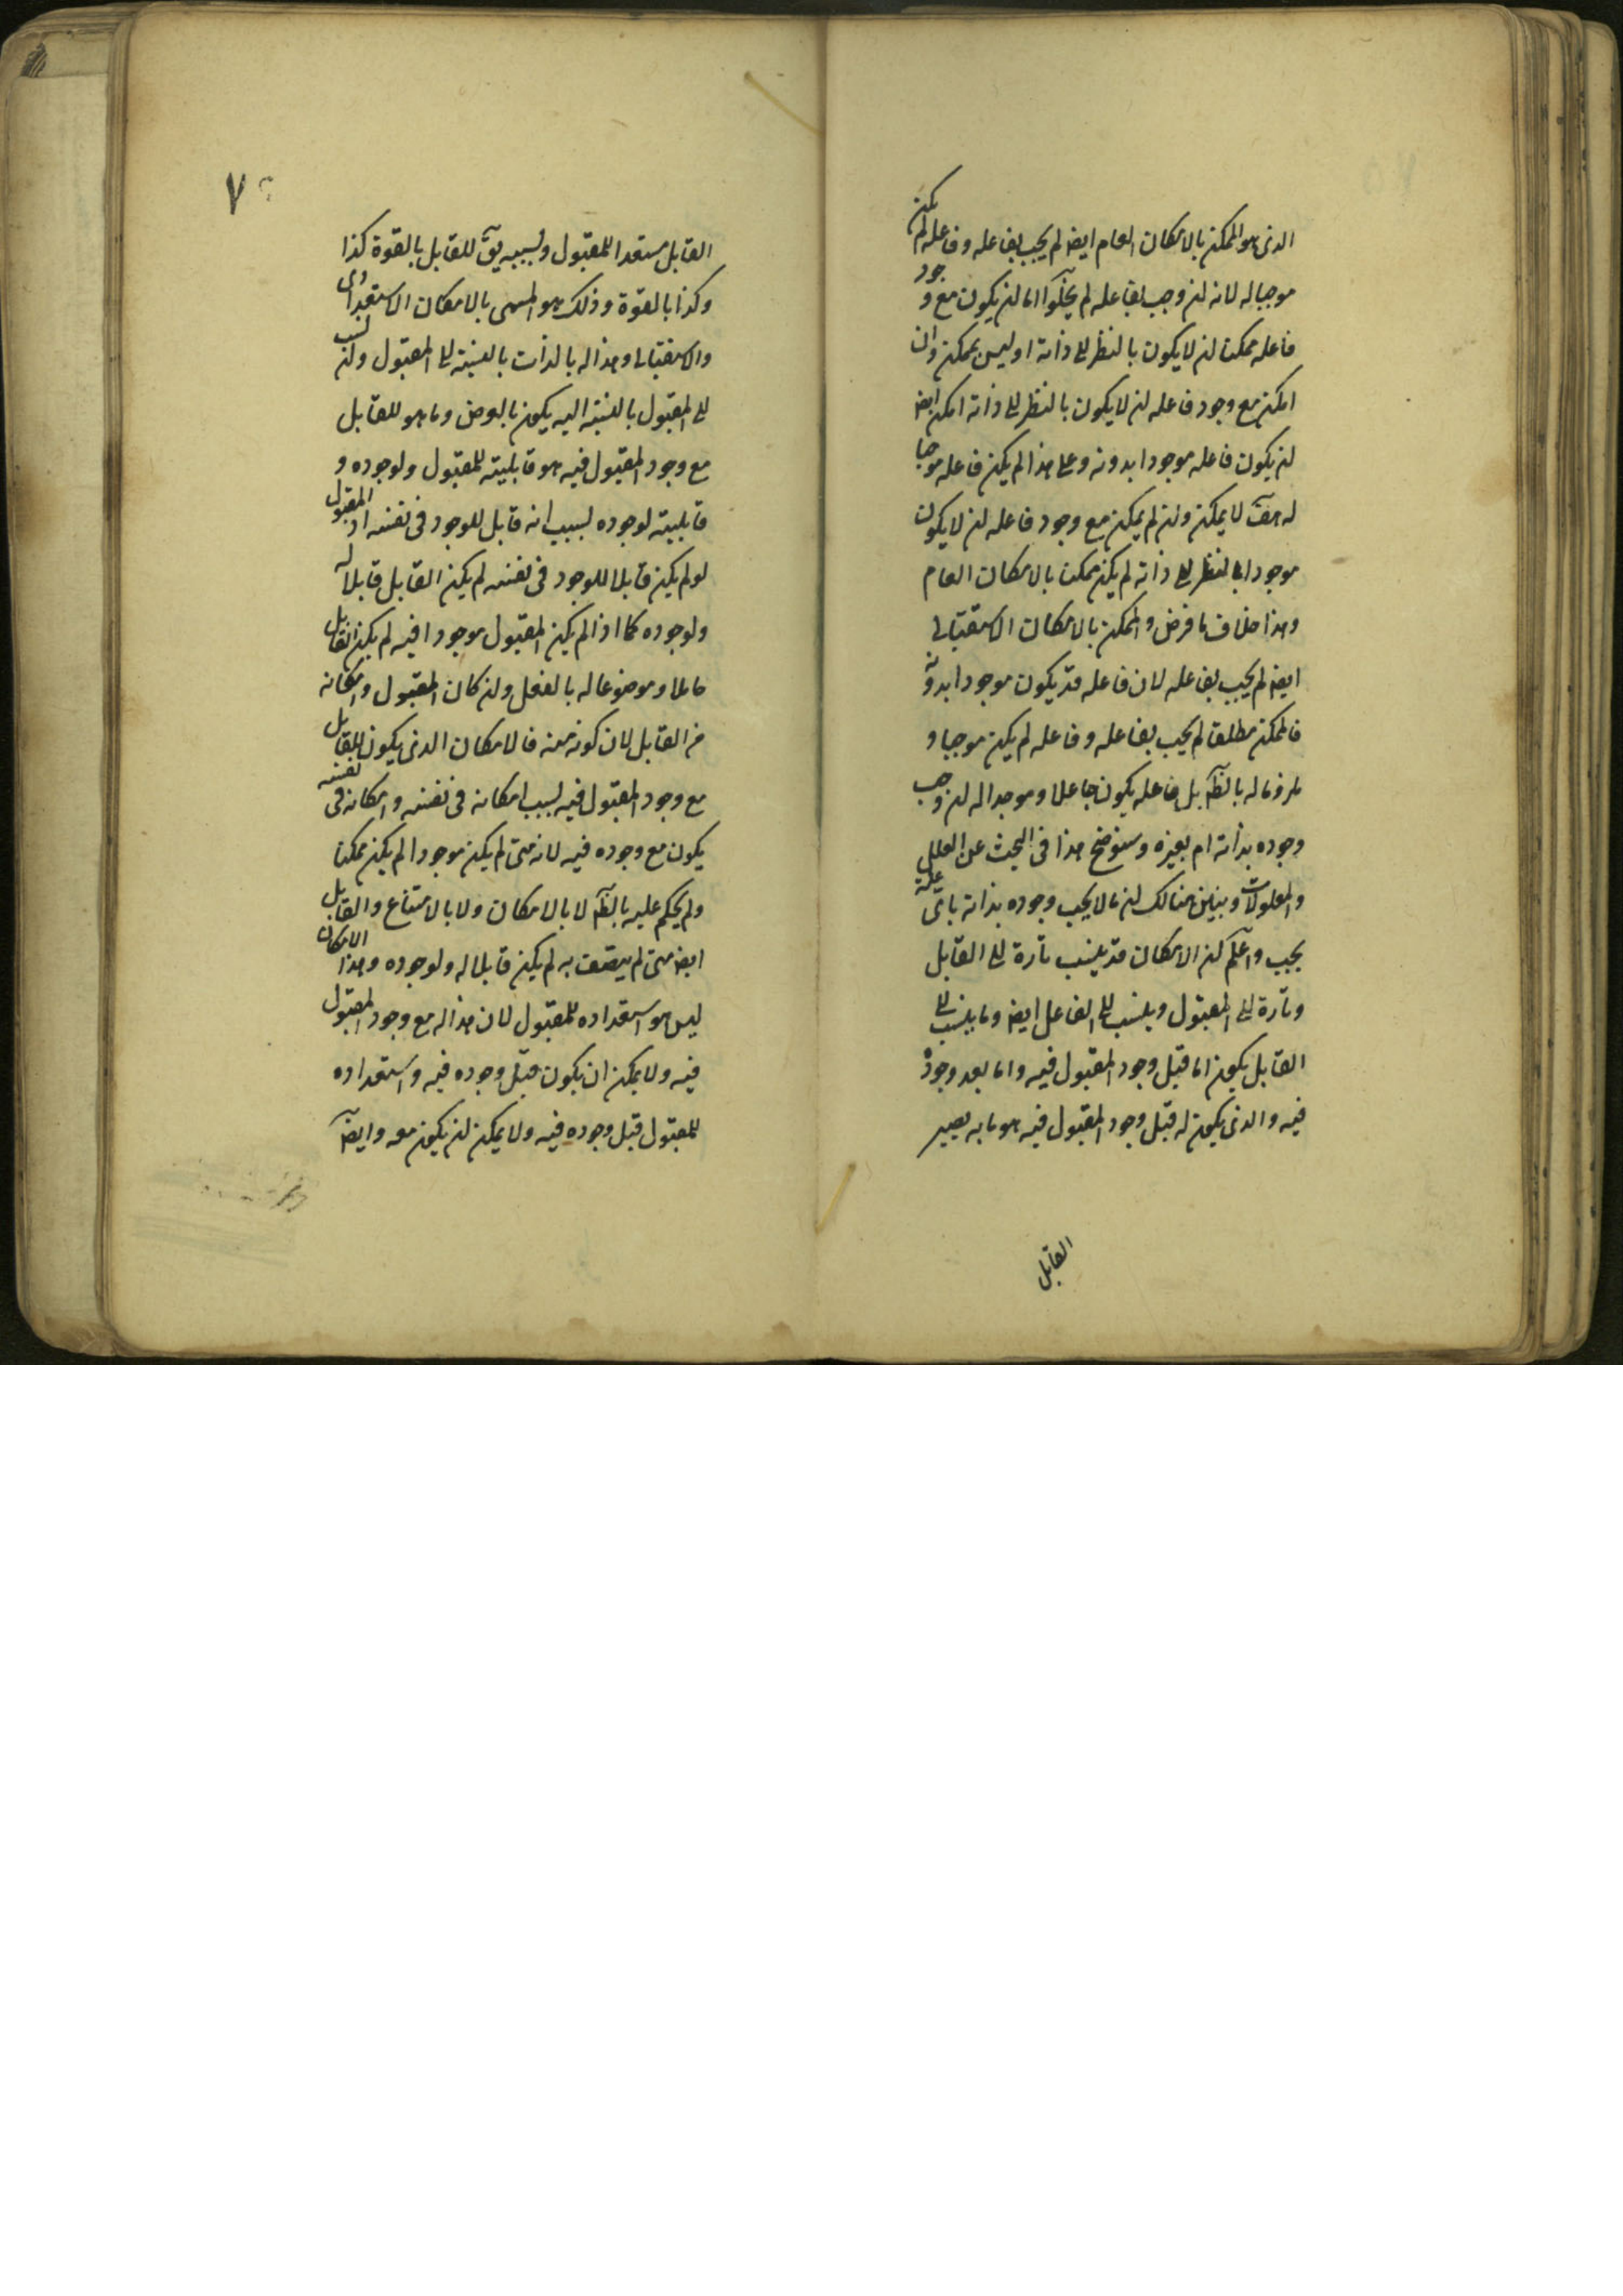 الذى هو الممكن بالامكان العام ايضا لم يجب بفاعله وفاعله لم يكن
موجبا له لانه ان وجب بفاعله لم يخلوا اما ان يكون مع وجود
فاعله ممكنا ان لا يكون بالنظر الى ذاته او ليس بممكن وان
امكن مع وجود فاعله ان لا يكون بالنظر الى ذاته امكن ايضا
ان يكون فاعله موجودا بدونه وعلى هذا لم يكن فاعله موجبا
له هف لا يمكن وان لم يمكن مع وجود فاعله ان لا يكون
موجودا بالنظر الى ذاته لم يكن ممكنا بالامكان العام
وهذا خلاف ما فرض والممكن بالامكان الاستقبالى
ايضا لم يجب بفاعله لان فاعله قد يكون موجودا بدونه
فالممكن مطلقا لم يجب بفاعله وفاعله لم يكن موجبا و
ملزوما له بالظ بل فاعله يكون جاعلا وموجدا له ان وجب
وجوده بذاته ام بغيره وسنوضح هذا فى البحث عن العلل
والمعلولات ونبين هنالك ان ما لا يجب وجوده بذاته باى علة
يجب واعلم ان الامكان قد ينسب تارة الى القابل
وتارة الى المقبول وينسب الى الفاعل ايضا وما ينسب الى
القابل يكون اما قبل وجود المقبول فيه واما بعد وجوده
فيه والذى يكون له قبل وجود المقبول فيه هو ما به يصير
القابل
٧
القابل مستعدا للمقبول وبسببه يق للقابل بالقوة كذا
وكذا بالقوة وذلك هو المسمى بالامكان الاستعدادى
والاستقبالى وهذا له بالذات بالنسبة الى المقبول وان نسب
الى المقبول بالنسبة اليه يكون بالعرض وما هو للقابل
مع وجود المقبول فيه هو قابليته للمقبول ولوجوده و
قابليته لوجوده بسبب انه قابل للوجود فى نفسه اذ المقبول
لو لم يكن قابلا للوجود فى نفسه لم يكن القابل قابلا له
ولوجوده كما اذا لم يكن المقبول موجودا فيه لم يكن القابل
حاملا وموضوعا له بالفعل وان كان المقبول وامكانه
من القابل لان كونه منه فالامكان الذى يكون للقابل
مع وجود المقبول فيه بسبب امكانه فى نفسه وامكانه فى نفسه
يكون مع وجوده فيه لانه متى لم يكن موجودا لم يكن ممكنا
ولم يحكم عليه بالظ لا بالامكان ولا بالامتناع والقابل
ايضا متى لم يتصف به لم يكن قابلا له ولوجوده وهذا الامكان
ليس هو استعداده للمقبول لان هذا له مع وجود المقبول
فيه ولا يمكن ان يكون قبل وجوده فيه واستعداده
للمقبول قبل وجوده فيه ولا يمكن ان يكون معه وايضا